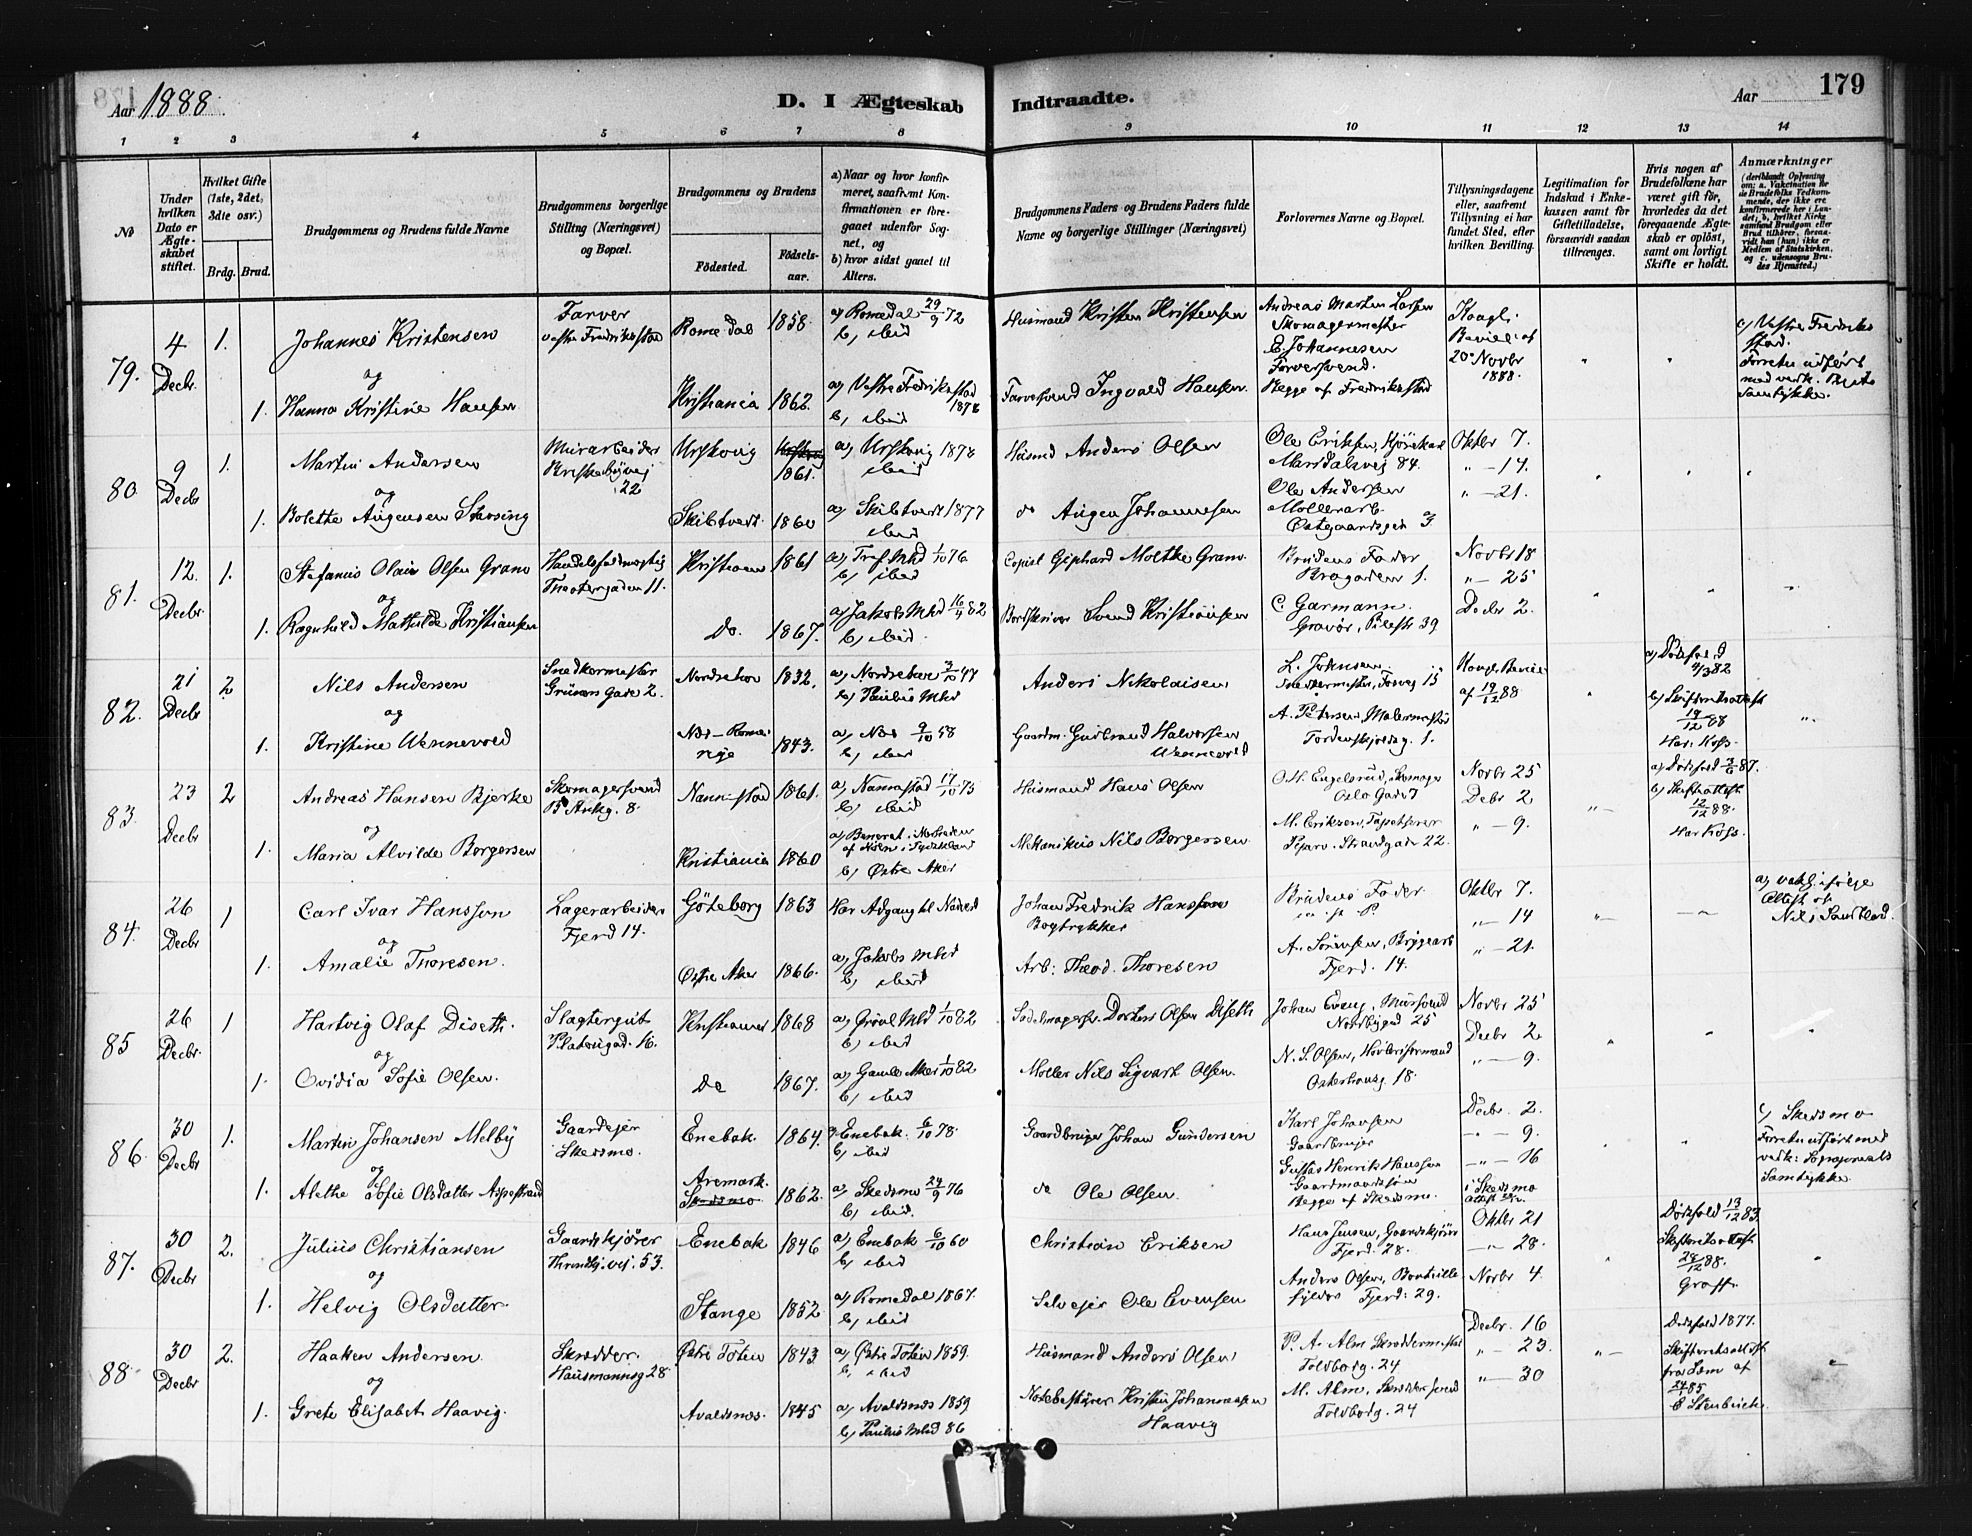 Aar 1888.
D. I Ægteskab Indtraadte.
Aar
179
1 2 3 4 5 6 7 8 9 10 11 12 13 14
No
Under hvilken Dato er Ægteskabet stiftet.
Hvilket Gifte (1ste, 2det, 3die osv.)
Brdg. Brud.
Brudgommens og Brudens fulde Navne
Brudgommens borgerlige Stilling (Næringsvei) og Bopæl.
Brudgommens og Brudens
Fødested.
Fødselsaar.
a) Naar og hvor konfirmeret, saafremt Konfirmationen er foregaaet udenfor Sognet, og
b) hvor sidst gaaet til Alters.
Brudgommens Faders og Brudens Faders fulde Navne og borgerlige Stillinger (Næringsvei)
Forlovernes Navne og Bopæl.
Tillysningsdagene eller, saafremt Tillysning ei har fundet Sted, efter hvilken Bevilling.
Legitimation for Indskud i Enkekassen samt for Giftetilladelse, forsaavidt saadan tiltrænges.
Hvis nogen af Brudefolkene har været gift før, hvorledes da det foregaaende Ægteskab er opløst, samt om lovligt Skifte er holdt.
Anmærkninger
79. 4 Decbr. 1. Johannes Kristensen
Farver
Vestre Fredrikstad
Romedal 1858.
a) Romedal 29/9 72
b) ibid
Husmand Kristen Kristensen
Andreas Martin Larsen
Skomagermester
E. Johannesen
Farversvend.
Begge af Fredrikstad
Kongl.
Bevill. af
20 Novbr
1888.
c) Vestre Fredrikstad.
Forretn. udført
med vedk. Præsts
Samtykke.
og
1. Hanna Kristine Hansen
Kristiania 1862.
a) Vestre Fredrikstad 1878
b) ibid
Farvesvend Ingvald Hansen
80 9 Decbr 1. Martin Andersen
Murarbeider
22
Urskoug 1861.
a) Urskoug 1878
ibid
Husmd Anders Olsen
Ole Eriksen, Kjørekarl
Maridalsvej 84.
Oktbr 7.
" — 14.
" — 21.
og
1. Bolette Augensen Stensing
Skibtvedt. 1860
a) Skibtvedt 1877
ibid
do Augen Johannesen
Ole Andersen
Møllerarb.
Østgaardsgd 3
81. 12. Decbr. 1. Stefanus Olaus Olsen Gram
Handelsfuldmægtig
Theatergaden 11.
Kristiania 1861
a) Tref Mkd 1/10 76
b) ibid
Copist Gephard Moltke Gram
Brudens Fader
Brogaden 1.
Novbr 18
" — 25
Decbr 2.
og
1. Ragnhild Mathilde Kristiansen
Do. 1867.
a) Jakobs Mkd 16/4 82
b) ibid.
Svend Kristiansen
C. Garmann.
Gravør, Pilestr 39
82. 21 Decbr 2 Nils Andersen
Snedkermester
Grünersgade 2.
Nordrehov 1832.
a) Nordrehov 3/10 47
b) Paulus Mkd
Anders Nikolaisen
L. Johnsen.
Snedkermester, Fosvej 15
Kongl. Bevill.
af 19/12 88
a) Dødsfald 4/3 82
b) Skifteretsattest
19/12 88
Har. Koss.
og
1. Kristine Wennevold
Næs — Romerige 1843.
a) Næs 9/10 58
b) ibid
Gaardm. Gudbrand Halvorsen
Wennevold
A. Petersen, Malermester
Tordenskjoldsg. 1.
83. 23 Decbr 2 Andreas Hansen Bjerke
Skomagersvend
B Ankg. 8.
Nannestad 1861.
a) Nannestad 17/10 75
b) ibid
Husmand Hans Olsen
O. H. Engelsrud, Skomager
Oslo Gade 7
Novbr 25
Decbr 2
" — 9.
a) Dødsfald 3/6 87.
b) Skifteattest
12/12 88.
Har. Koss.
og
1. Maria Alvilde Borgersen
Kristiania 1860
b) Østre Aker
Mekanikus Nils Borgersen
M. Eriksen, Tapetserer
Strandgade 22.
84. 26 Decbr 1 Carl Ivar Hansson
Lagerarbeider
Fjerd 14.
Göteborg 1863
Har Adgang til Nadverd
Johan Fredrik Hansson
Bogtrykker
Brudens Fader
Oktbr 7.
" — 14
" — 21.
a) vakc. ifølge
Attest af
Nils Sandblad.
og
1. Amalie Thoresen.
Østre Aker 1866.
a) Jakobs Mkd
b) ibid
Arb: Theod. Thoresen
A. Sørensen, Bryggearb
Fjerd. 14.
85 26 Decbr. 1 Hartvig Olaf Diseth.
Slagtergut
Platousgad. 16.
Kristiania 1868
a) Grønl Mkd 1/10 82
b) ibid
Sadelmagersv. Olsen Diseth
Johan Evang, Mursvend
Nordbygd 25
Novbr 25
Decbr 2
" — 9.
og
1. Ovidia Sofie Olsen.
Do 1867.
a) Gamle Aker 1/10 82
b) ibid
Møller Nils Sigvart Olsen.
N. S. Olsen,
Osterhausg. 18.
86. 30 Decbr 1. Martin Johansen Melby
Gaardejer
Skedsmo.
Enebak. 1864.
a) Enebak. 6/10 78
b) ibid
Gaardbruger Johan Gundersen
Karl Johansen
Gaardbruger
Gustav Henrik Hansson
Gaardmandssøn
Begge af Skedsmo.
Decbr. 2.
— " — 9.
— " — 16
i Skedsmo
c) Skedsmo
Forretn. udført med
vedk: Sognepræsts
Samtykke.
og
1. Alethe Sofie Olsdatter Aspestrand
Aremark.
Skedsmo
1862.
a) Skedsmo 24/9 76
b) ibid.
do Ole Olsen.
87. 30 Decbr 2. Julius Christiansen
Gaardskjører
Trondhj. vej. 53.
Enebak 1846
a) Enebak 6/10 60
b) ibid
Christian Eriksen
Hans Jensen, Gaardskjører
Fjerd. 28.
Oktbr 21
— " — 28.
Novbr 4.
Dødsfald 13/12 83.
Skifteretsattest
28/12 88.
Graff.
og
1. Helvig Olsdatter.
Stange 1852
a) Romedal 1867.
b) ibid
Selvejer Ole Evensen
Anders Olsen,
Fjerd: 29.
88 30 Decbr 2. Haaken Andersen
Skrædder.
Hausmannsg 28
Østre Toten 1843
a) Østre Toten 1859.
b) ibid
Husmand Anders Olsen
P. A. Alm Skræddermester
Toldbodg. 24
Decbr. 16
" — 23.
" — 30
Dødsfald 1877.
Skifteretsattest
fra Lom af
24/1 85
og
1. Grete Elisabet Haavig.
Avaldsnæs. 1845
a) Avaldsnæs 1859
b) Paulus Mkd 86
Notebestyrer Kristen Johannessen
Haavig
M. Alm, Skræddersvend
Toldbodg. 24